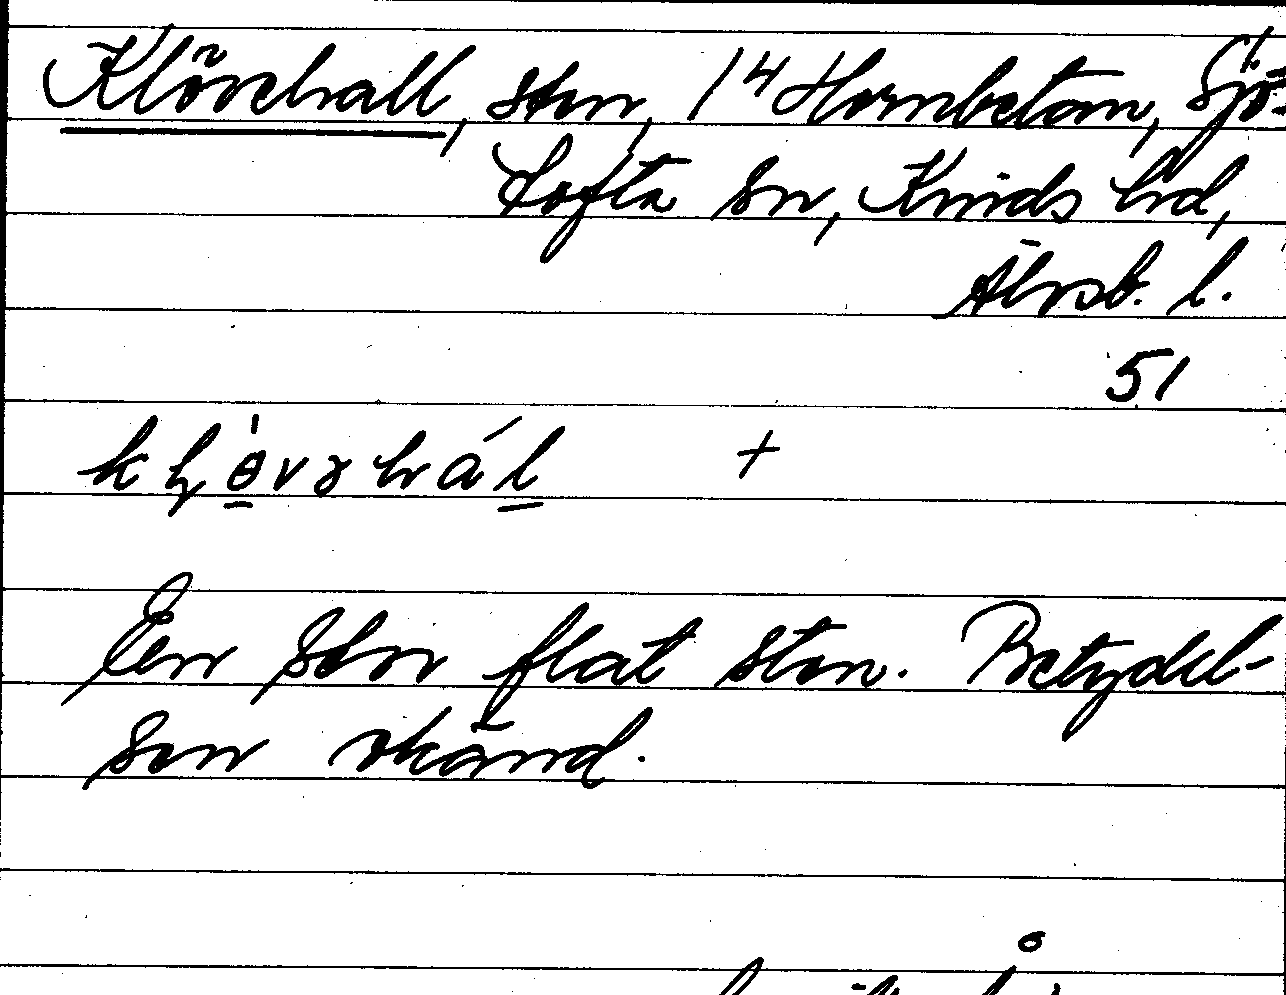 Klövehall, sten, 14 Hornbetom, Sjö-
tofta sn, Kinds hd,
Älvsb. l.
51
+
En stor flat sten. Betydel-
sen okänd.